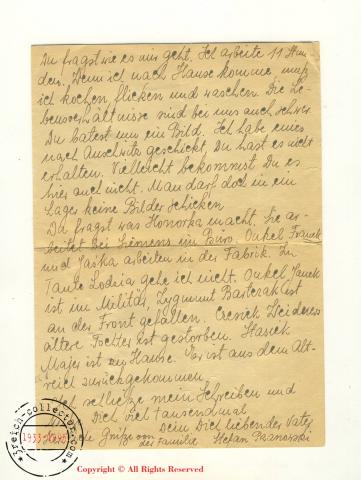 Du fragst wie es uns geht. Ich arbeite 11 Stun-
den. Wenn ich nach Hause komme, muß
ich kochen, flicken und waschen. Die Le-
bensverhältnisse sind bei uns auch schwer.
Du batest um ein Bild. Ich habe eines
nach Auschwitz geschickt. Du hast es nicht
erhalten. Vielleicht bekommst Du es
hier auch nicht. Man darf doch in ein
Lager keine Bilder schicken.
Du fragst was Honorka macht. Sie ar-
beitet bei Siemens im Büro. Onkel Franek
und Jaśka arbeiten in der Fabrik. Zu
Tante Lodzia gehe ich nicht. Onkel Janek
ist im Militär, Zygmunt
an der Front gefallen.
ältere Tochter ist gestorben. Stanek
Majer ist zu Hause. Er ist aus dem Alt-
reich zurückgekommen.
schließe mein Schreiben und
Dich viel tausendmal
Dein Dich liebender Vater
Grüße von der Familie Stefan
3reich-collector.com
1933-1945
Copyright © All Rights Reserved